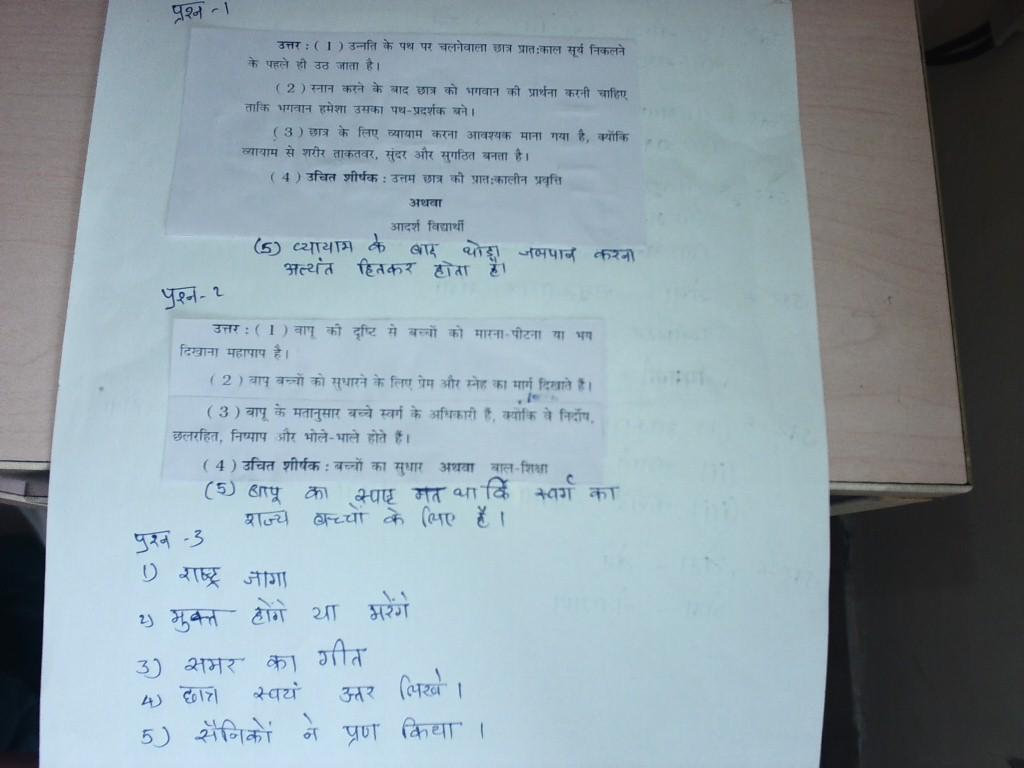 प्रश्न -1
उत्तर : ( 1 ) उन्नति के पथ पर चलनेवाला छात्र प्रात:काल सूर्य निकलने
के पहले ही उठ जाता है।
( 2 ) स्नान करने के बाद छात्र को भगवान की प्रार्थना करनी चाहिए
ताकि भगवान हमेशा उसका पथ-प्रदर्शक बने।
( 3 ) छात्र के लिए व्यायाम करना आवश्यक माना गया है, क्योंकि
व्यायाम से शरीर ताकतवर, सुंदर और सुगठित बनता है।
( 4 ) उचित शीर्षक : उत्तम छात्र की प्रात:कालीन प्रवृत्ति
अथवा
आदर्श विद्यार्थी
(5) व्यायाम के बाद थोड़ा जलपान करना
अत्यंत हितकर होता है।
प्रश्न-2
उत्तर : ( 1 ) बापू की दृष्टि से बच्चों को मारना-पीटना या भय
दिखाना महापाप है।
( 2 ) बापू बच्चों को सुधारने के लिए प्रेम और स्नेह का मार्ग दिखाते हैं।
( 3 ) बापू के मतानुसार बच्चे स्वर्ग के अधिकारी हैं, क्योंकि वे निर्दोष,
छलरहित, निष्पाप और भोले-भाले होते हैं।
( 4 ) उचित शीर्षक : बच्चों का सुधार अथवा बाल-शिक्षा
(5) बापू का मत था कि स्वर्ग का
राज्य बच्चों के लिए है।
प्रश्न -3
1) राष्ट्र जागा
2) मुक्त होंगे या मरेंगे
3) समर का गीत
4) छात्र स्वयं उत्तर लिखे।
5) सैनिकों ने प्रण किया।